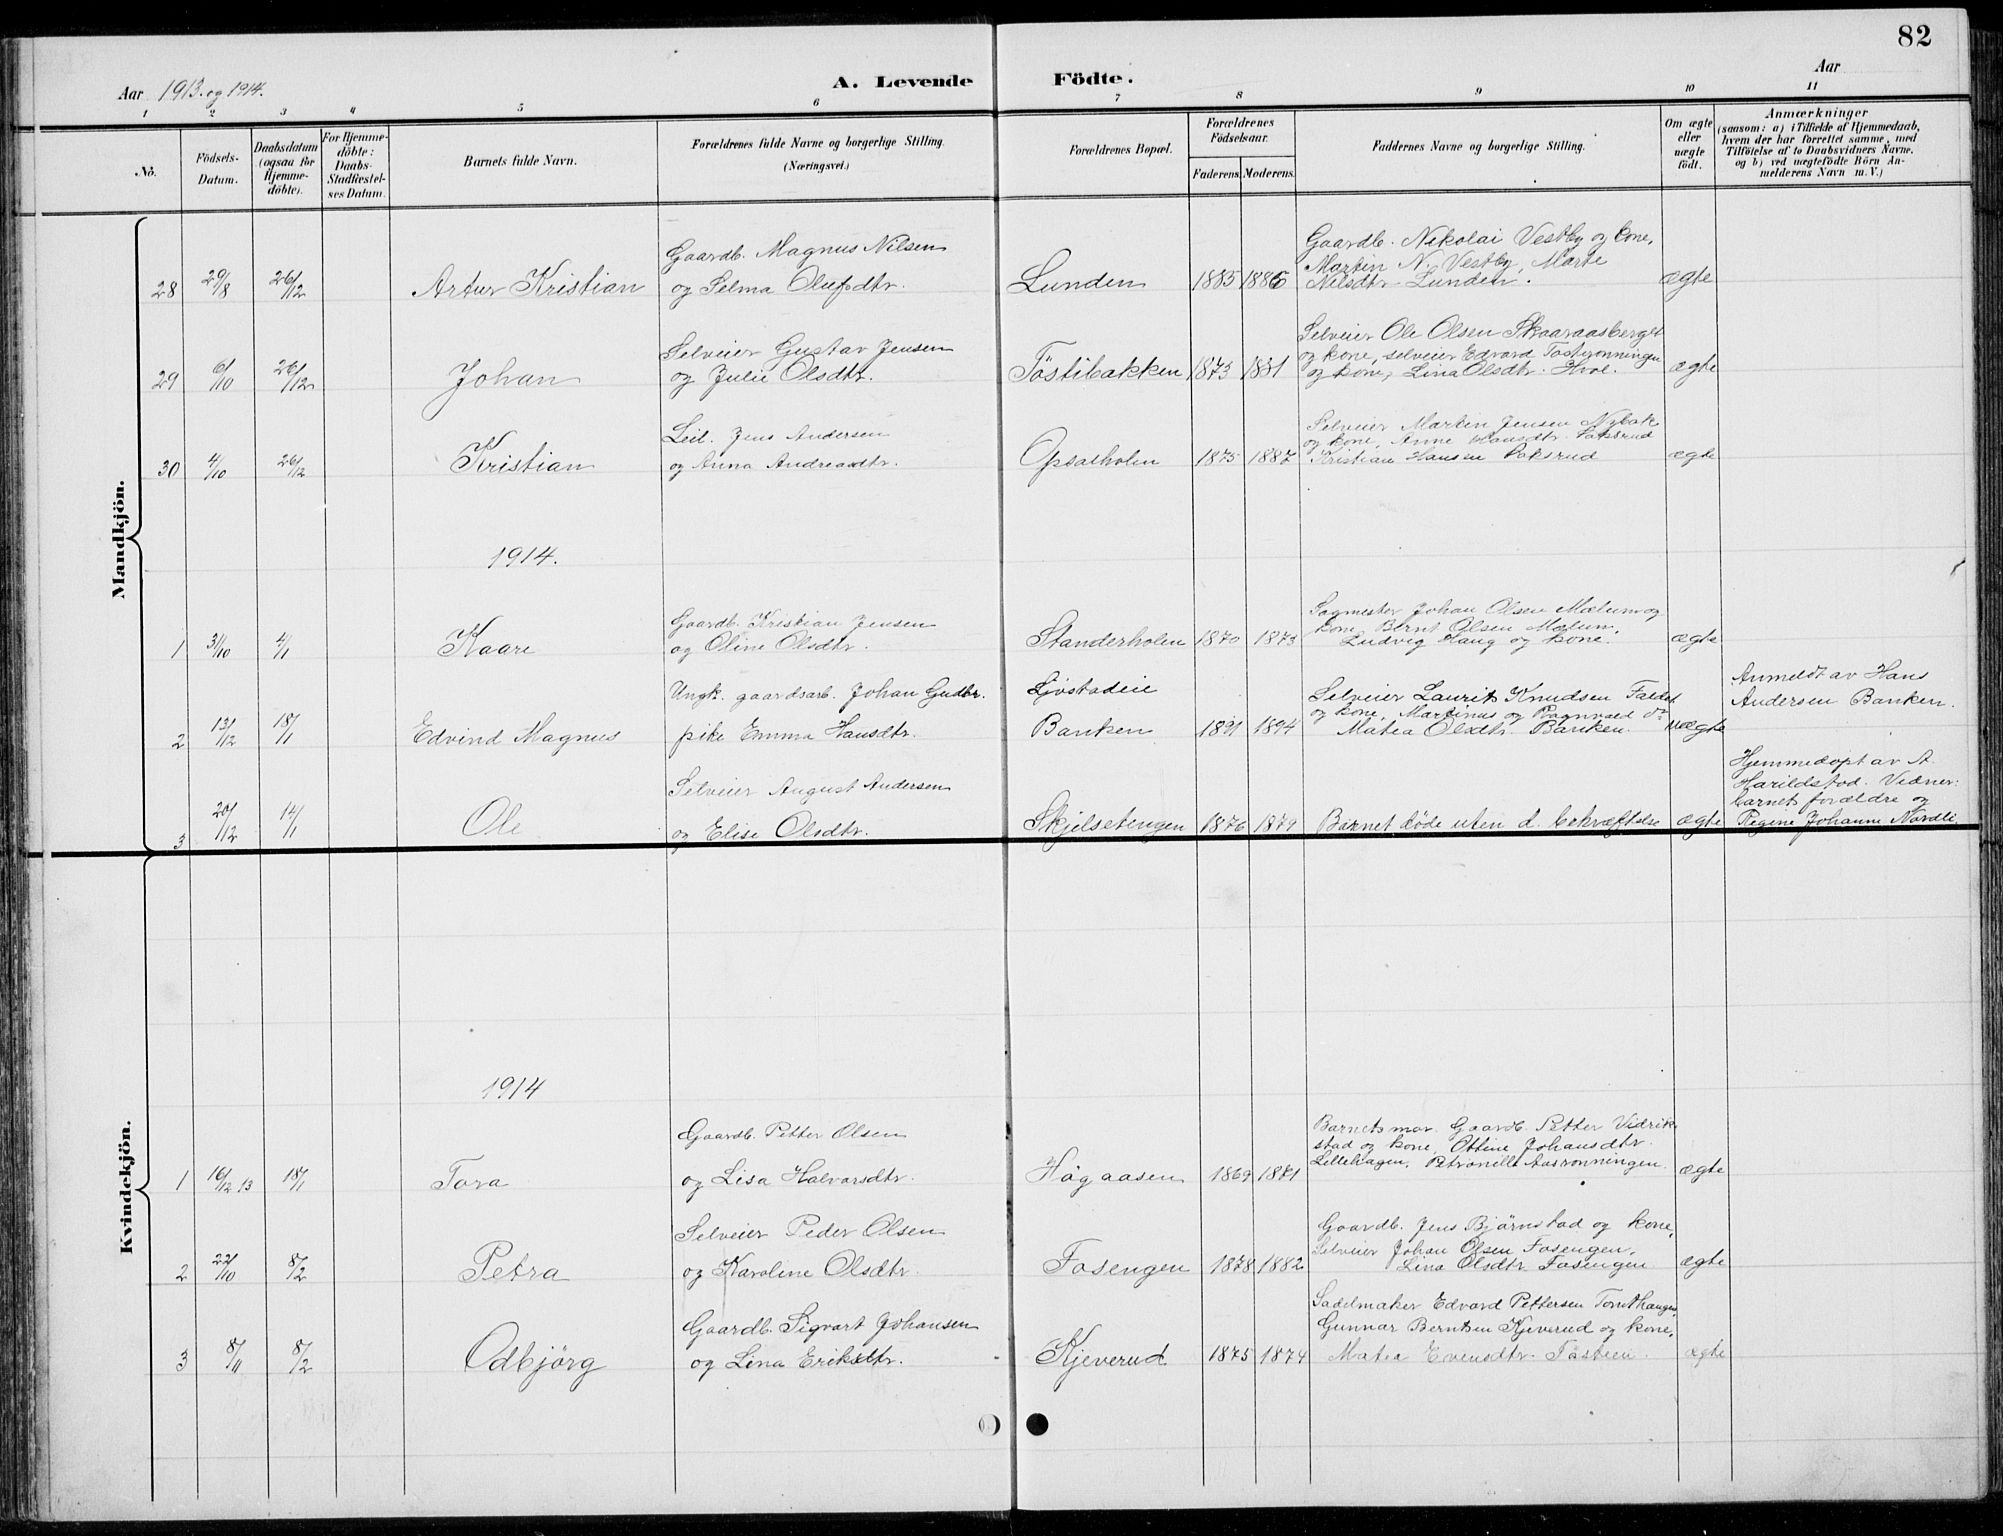 82
Aar 1913. og 1914.
A. Levende Födte.
Aar
1 2 3 4 5 6 7 8 9 10 11
No.
Födsels-Datum.
Daabsdatum (ogsaa for Hjemme-döbte).
For Hjemme-döbte: Daabs-Stadfæstel-ses Datum.
Barnets fulde Navn.
Forældrenes fulde Navne og borgerlige Stilling.
(Næringsvei.)
Forældrenes Bopæl.
Forældrenes Födselsaar.
Faderens. Moderens.
Faddernes Navne og borgerlige Stilling.
Om ægte eller uægte födt.
Anmærkninger
(saasom: a) i Tilfælde af Hjemmedaab,
hvem der har forrettet samme, med
Tilföielse af to Daabsvidners Navne.
og b) ved uægtefödte Börn An-
melderens Navn m. V.)
Mandkjön.
28 29/8 26/12 Artur Kristian
Gaardb. Magnus Nilsen
og Selma Olufsdtr.
Lunden 1885 1886
Gaardb. Nikolai Vestby og kone,
Martin N. Vestby, Marte
Nilsdtr. Lunden.
ægte
29 6/10 26/12 Johan
Selveier Gustav Jensen
og Julie Olsdtr.
Töstibakken 1873 1881
Selveier Ole Olsen Skaaraasberget
og kone, selveier Edvard Tosteronningen
og kone, Lina Olsdtr. Hvel.
ægte
30 4/10 26/12 Kristian
Leil. Jens Andersen
og Anna Andreasdtr.
Opsalholen 1875 1887
Selveier Martin Jensen Nybak
og kone, Anne Hansdtr. Paksrud
Kristian Hansen Paksrud
ægte
1914.
1 31/10 4/1 Kaare
Gaardb. Kristian Jensen
og Oline Olsdtr.
Standerholen 1870 1873
Sagmester Johan Olsen Mælum og
kone, Bernt Olsen Mælum,
Ludvig Haug og kone.
ægte
2 13/12 18/1 Edvind Magnus
Ungk. gaardsarb. Johan Gudbr.
pike Emma Hansdtr.
Ljöstadeie
Banken 1891 1894
Selveier Laurits Knudsen Faldet
og kone, Martinus og Ragnvald do
Matea Olsdtr. Banken.
uægte
Anmeldt av Hans
Andersen Banken.
3 20/12 14/1 Ole
Selveier August Andersen
og Elise Olsdtr.
Skjelsetengen 1876 1879
Barnet döde uten d. bekræftelse
ægte
Hjemmedöpt av A.
Harildstad. Vidner:
barnets forældre og
Regine Johanne Nordli
Kvindekjön.
1914
1 16/12 13 18/1 Tora
Gaardb. Petter Olsen
og Lisa Halvorsdtr.
Högaasen 1869 1871
Barnets mor. Gaardb. Petter Vidrik-
stad og kone, Ottine Johansdtr.
Lillehagen, Petronille Aasronningen.
ægte
2 22/10 8/2 Petra
Selveier Peder Olsen
og Karoline Olsdtr.
Fosengen 1878 1882
Gaardb. Jens Bjørnstad og kone,
Selveier Johan Olsen Fosengen,
Lina Olsdtr Fosengen
ægte
3 8/11 8/2 Odbjörg
Gaardb. Sigvart Johansen
og Lina Eriksdtr.
Kjeverud 1875 1874
Sadelmaker Edvard Pettersen Tomthaugen,
Gunnar Berntsen Kjeverud og kone,
Matea Evensdtr. Tösteen.
ægte